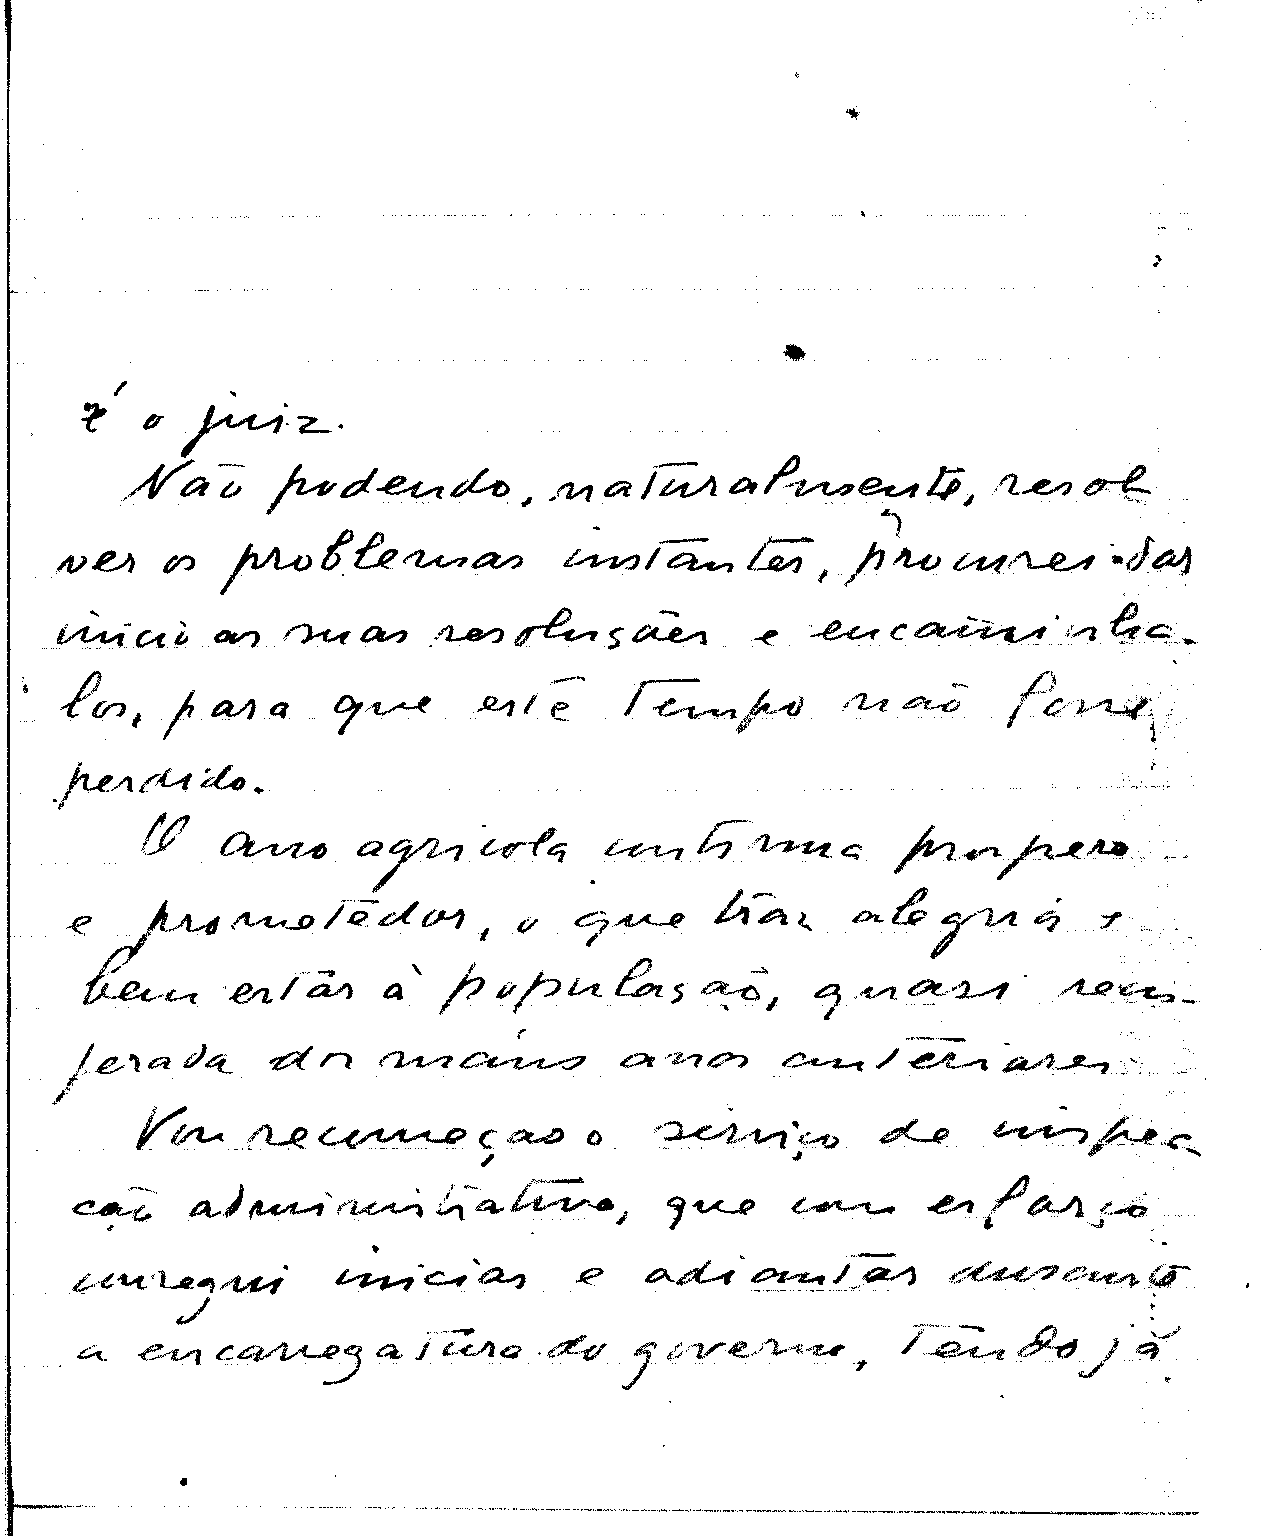 é o juiz.
Não podendo, naturalmente, resol
ver os problemas instantes, procurei dar
inicio as suas resoluções e encaminha-
los, para que este tempo não fosse
perdido.
O ano agricola continua prospero
e prometedor, o que traz alegria e
bem estar à população, quasi recu-
perada dos maus anos anteriores
Vou recomeçar o serviço de inspec-
ção administrativa, que com esforço
consegui iniciar e adiantar durante
a encarregatura do governo, tendo já